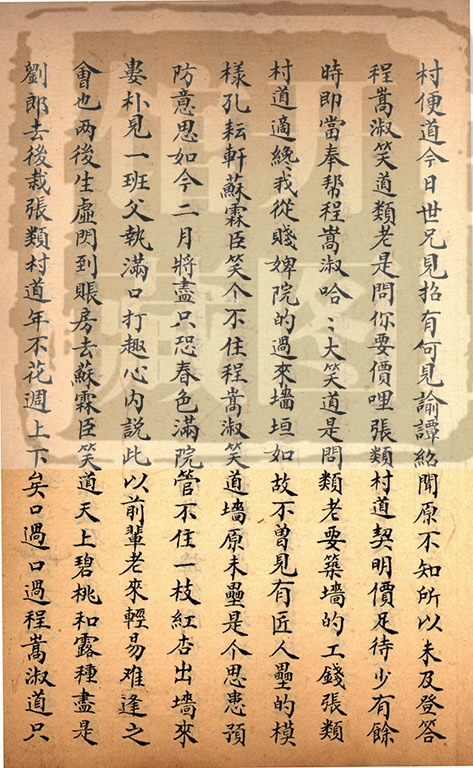 村便道今日世兄見招有何見諭譚紹聞原不知所以未及登答
程嵩淑笑道類老是問你要價哩張類村道契明價足待少有餘
時即當奉幫程嵩淑哈〻大笑道是問類老要築墻的工錢張類
村道適纔我從賤婢院的過來墻垣如故不曽見有匠人壘的模
様孔耘軒蘇霖臣笑个不住程嵩淑笑道墻原未壘是个思患預
防意思如今二月將盡只恐春色滿院管不住一枝紅杏出墻來
婁朴見一班父執滿口打趣心內説此以前輩老來輕易难逢之
會也两後生虛閃到賬房去蘇霖臣笑道天上碧桃和露種盡是
劉郎去後栽張類村道年不花週上下矣口過口過程嵩淑道只